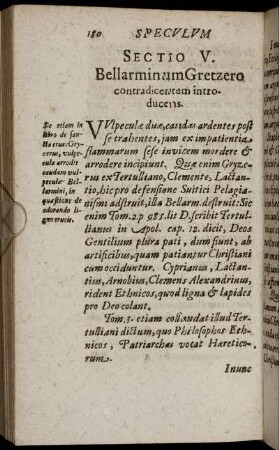 180 SPECULUM
SECTIO V.
Bellarminum Gretzero
contradicentem intro-
ducens.
Sic etiam in
libro de san-
cta cruce: Gry-
zerus, vulpe-
cula arrodit
caudam vul-
peculæ Bel-
larmini, in
quæstione de
adorando li-
gno crucis.
VVlpeculæ duæ, caudas ardentes post
se trahentes, jam ex impatientia
flammarum sese invicem mordere &
arrodere incipiunt. Quæ enim Gryze-
rus ex Tertulliano, Clemente, Lactan-
tio, hic pro defensione Suitici Pelagia-
nismi adstruit, illa Bellarm. destruit: Sic
enim Tom. 2. p 985. lit D. scribit Tertul-
lianus in Apol. cap. 12. dicit, Deos
Gentilium plura pati, dum fiunt, ab
artificibus, quam patiantur Christiani
cum occiduntur. Cyprianus, Lactan-
tius, Arnobius, Clemens Alexandrinus,
rident Ethnicos, quod ligna & lapides
pro Deo colant.
Tom. 3. etiam collaudat illud Ter-
tulliani dictum, quo Philosophos Eth-
nicos, Patriarchas vocat Hæretico-
rum.
Inunc